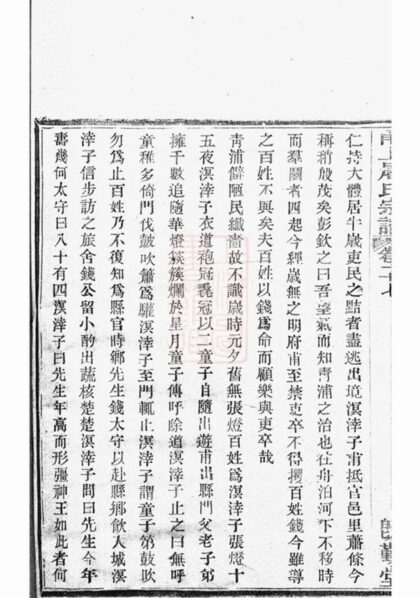 甬上屠氏宗譜 卷二十七
仁持大體居半歲吏民之黠者盡逃出境溟涬子甫抵官邑里蕭條今
稱稍殷茂矣彭欽之曰吾望氣而知青浦之治也往舟泊河下不移時
而羣鬬者四起今經歲無之明府甫至禁吏卒不得擾百姓錢今雖導
之百姓不與矣夫百姓以錢爲命而顧樂與吏卒哉
青浦僻陋民纖嗇故不識歲時元夕舊無張燈百姓爲溟涬子張燈十
五夜溟涬子衣道袍冠毳冠以二童子自隨出遊甫出縣門父老子弟
擁千數追隨華燈簇簇爛於星月童子傳呼除道溟涬子止之曰無呼
童稚多倚門伐鼓吹簫爲驩溟涬子至門輒止溟涬子謂童子第鼓吹
勿爲止百姓乃不復知爲縣官時鄉先生錢太守以赴縣鄉飲人城溟
涬子信步訪之旅舍錢公留小酌出蔬核楚楚溟涬子問曰先生今年
壽幾何太守曰八十有四溟涬子曰先生年高而形彊神王如此者何
既勤堂